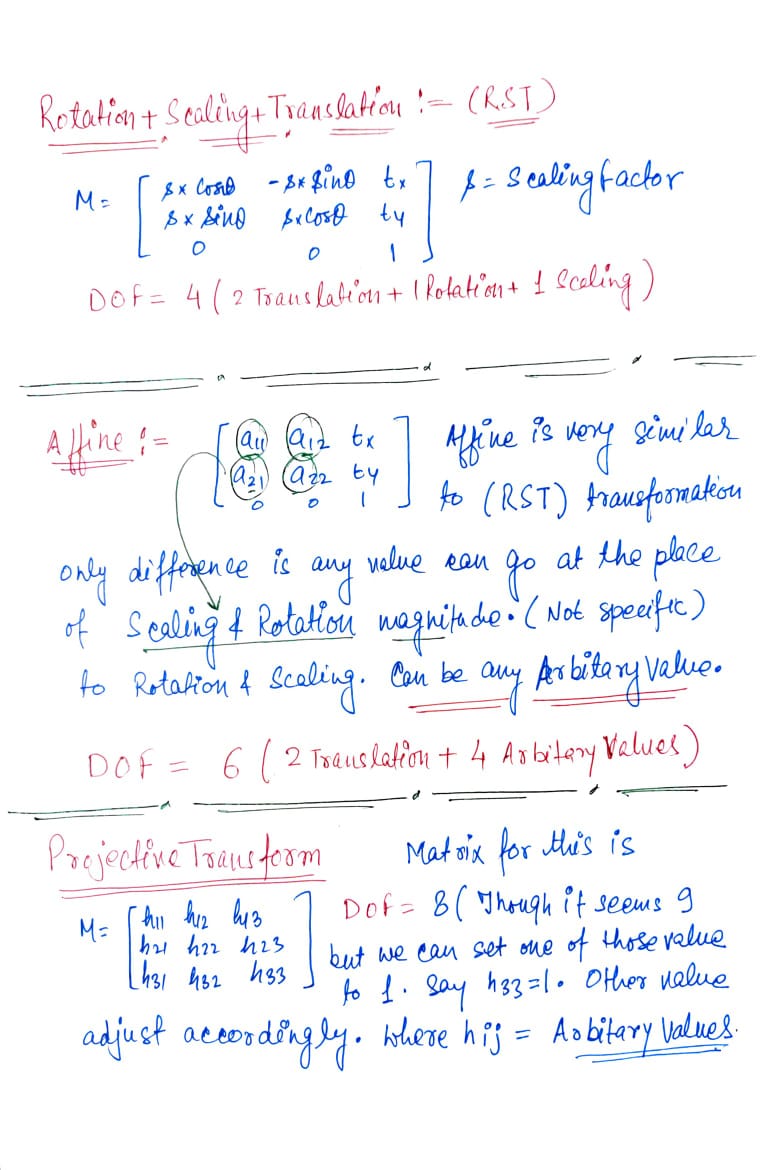 Rotation + Scaling + Translation := (RST)
M = [ s x Cosθ -s x Sinθ tx ] s = Scaling factor
s x Sinθ s x Cosθ ty
0 0 1
DOF = 4 ( 2 Translation + 1 Rotation + 1 Scaling )
Affine := [ a11 a12 tx ] Affine is very similar
a21 a22 ty
0 0 1 to (RST) transformation
only difference is any value can go at the place
of Scaling & Rotation magnitude. ( Not specific )
to Rotation & Scaling. Can be any Arbitary Value.
DOF = 6 ( 2 Translation + 4 Arbitary Values )
Projective Transform Matrix for this is
M = [ h11 h12 h13 ] DOF = 8 ( Though it seems 9
h21 h22 h23 but we can set one of those value
h31 h32 h33 to 1. Say h33 = 1. Other value
adjust accordingly. Where hij = Arbitary Values.